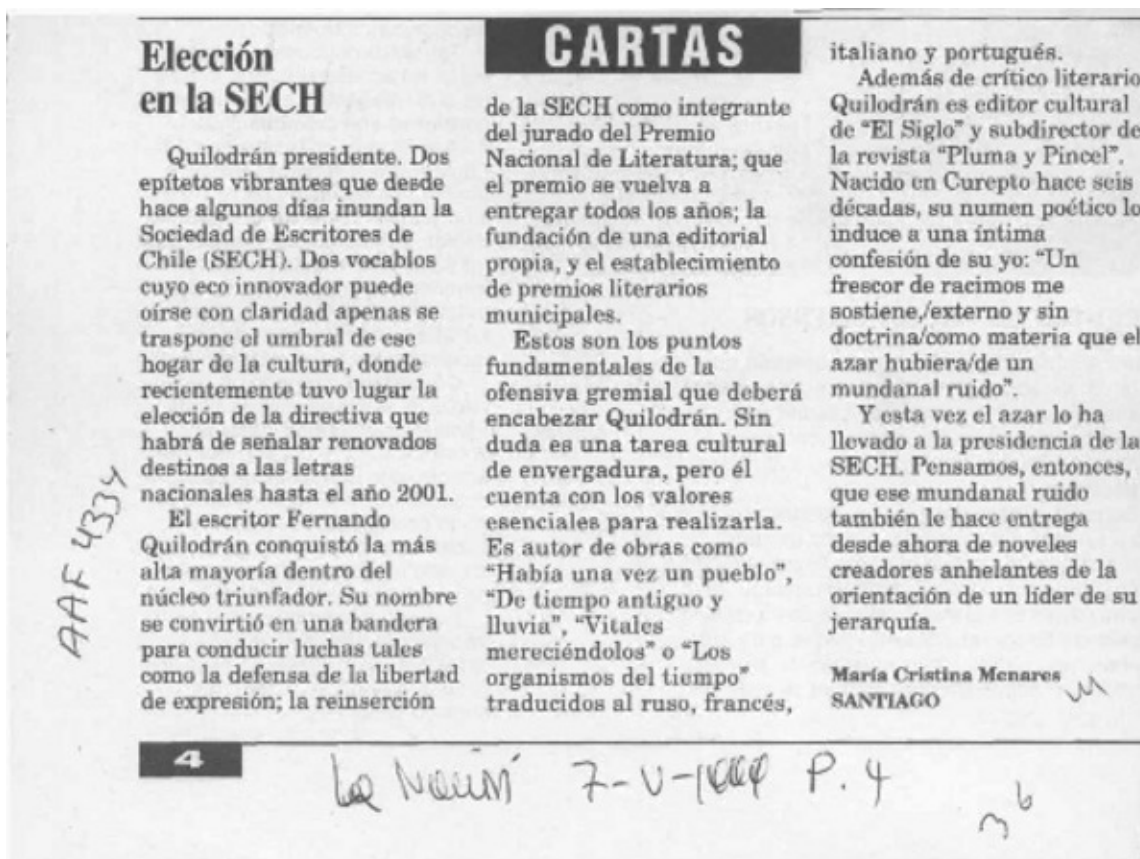 Elección
en la SECH
Quilodrán presidente. Dos
epítetos vibrantes que desde
hace algunos días inundan la
Sociedad de Escritores de
Chile (SECH). Dos vocablos
cuyo eco innovador puede
oírse con claridad apenas se
traspone el umbral de ese
hogar de la cultura, donde
recientemente tuvo lugar la
elección de la directiva que
habrá de señalar renovados
destinos a las letras
nacionales hasta el año 2001.
El escritor Fernando
Quilodrán conquistó la más
alta mayoría dentro del
núcleo triunfador. Su nombre
se convirtió en una bandera
para conducir luchas tales
como la defensa de la libertad
de expresión; la reinserción
CARTAS
de la SECH como integrante
del jurado del Premio
Nacional de Literatura; que
el premio se vuelva a
entregar todos los años; la
fundación de una editorial
propia, y el establecimiento
de premios literarios
municipales.
Estos son los puntos
fundamentales de la
ofensiva gremial que deberá
encabezar Quilodrán. Sin
duda es una tarea cultural
de envergadura, pero él
cuenta con los valores
esenciales para realizarla.
Es autor de obras como
"Había una vez un pueblo",
"De tiempo antiguo y
lluvia", "Vitales
mereciéndolos" o "Los
organismos del tiempo"
traducidos al ruso, francés,
italiano y portugués.
Además de crítico literario
Quilodrán es editor cultural
de "El Siglo" y subdirector de
la revista "Pluma y Pincel".
Nacido en Curepto hace seis
décadas, su numen poético lo
induce a una íntima
confesión de su yo: "Un
frescor de racimos me
sostiene,/externo y sin
doctrina/como materia que el
azar hubiera/de un
mundanal ruido".
Y esta vez el azar lo ha
llevado a la presidencia de la
SECH. Pensamos, entonces,
que ese mundanal ruido
también le hace entrega
desde ahora de noveles
creadores anhelantes de la
orientación de un líder de su
jerarquía.
María Cristina Menares
SANTIAGO
4
AAF 4334
La 7-V- P. 4